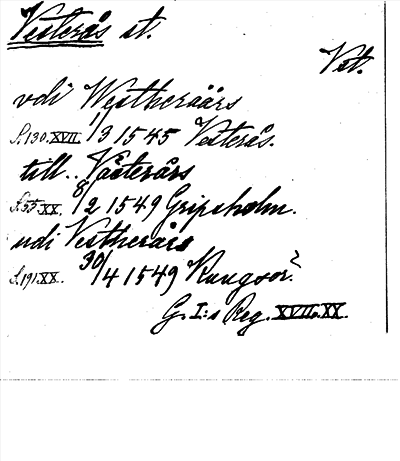 Vesterås st.
Vst.
vdi Westheraårs
S.130.XVII. 1/3 1545 Vesterås.
till.. Våsterårs
S.55.XX. 8/2 1549 Gripsholm.
udi Vestherårs
S.191.XX. 30/4 1549 Kungsör?
G. I:s Reg. XVII o. XX.